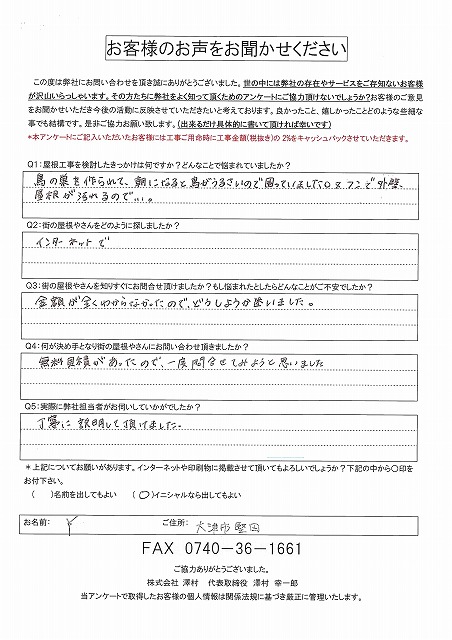 お客様のお声をお聞かせください
この度は弊社にお問い合わせを頂き誠にありがとうございました。世の中には弊社の存在やサービスをご存知ないお客様
が沢山いらっしゃいます。その方たちに弊社をよく知って頂くためのアンケートにご協力頂けないでしょうか?お客様のご意見
をお聞かせいただき今後の活動に反映させていただきたいと考えております。良かったこと、嬉しかったことどのような些細な
事でも結構です。是非ご協力お願い致します。(出来るだけ具体的に書いて頂ければ幸いです)
*本アンケートにご記入いただいたお客様には工事ご用命時に工事金額(税抜き)の2%をキャッシュバックさせていただきます。
Q1:屋根工事を検討したきっかけは何ですか?どんなことで悩まれていましたか?
鳥の巣を作られて、朝になると鳥がうるさいので困っていました。又フンで外壁、
屋根が汚れるので...。
Q2:街の屋根やさんをどのように探しましたか?
インターネットで
Q3:街の屋根やさんを知りすぐにお問合せ頂けましたか?もし悩まれたとしたらどんなことがご不安でしたか?
金額が全くわからなかったので、どうしようか迷いました。
Q4:何が決め手となり街の屋根やさんにお問い合わせ頂きましたか?
無料見積があったので、一度問合せてみようと思いました
Q5:実際に弊社担当者がお伺いしていかがでしたか?
丁寧に説明して頂けました。
*上記についてお願いがあります。インターネットや印刷物に掲載させて頂いてもよろしいでしょうか?下記の中から〇印を
お付下さい。
( )名前を出してもよい (〇)イニシャルなら出してもよい
お名前: Y ご住所: 大津市堅田
FAX 0740-36-1661
ご協力ありがとうございました。
株式会社 澤村 代表取締役 澤村 幸一郎
当アンケートで取得したお客様の個人情報は関係法規に基づき厳正に管理いたします。